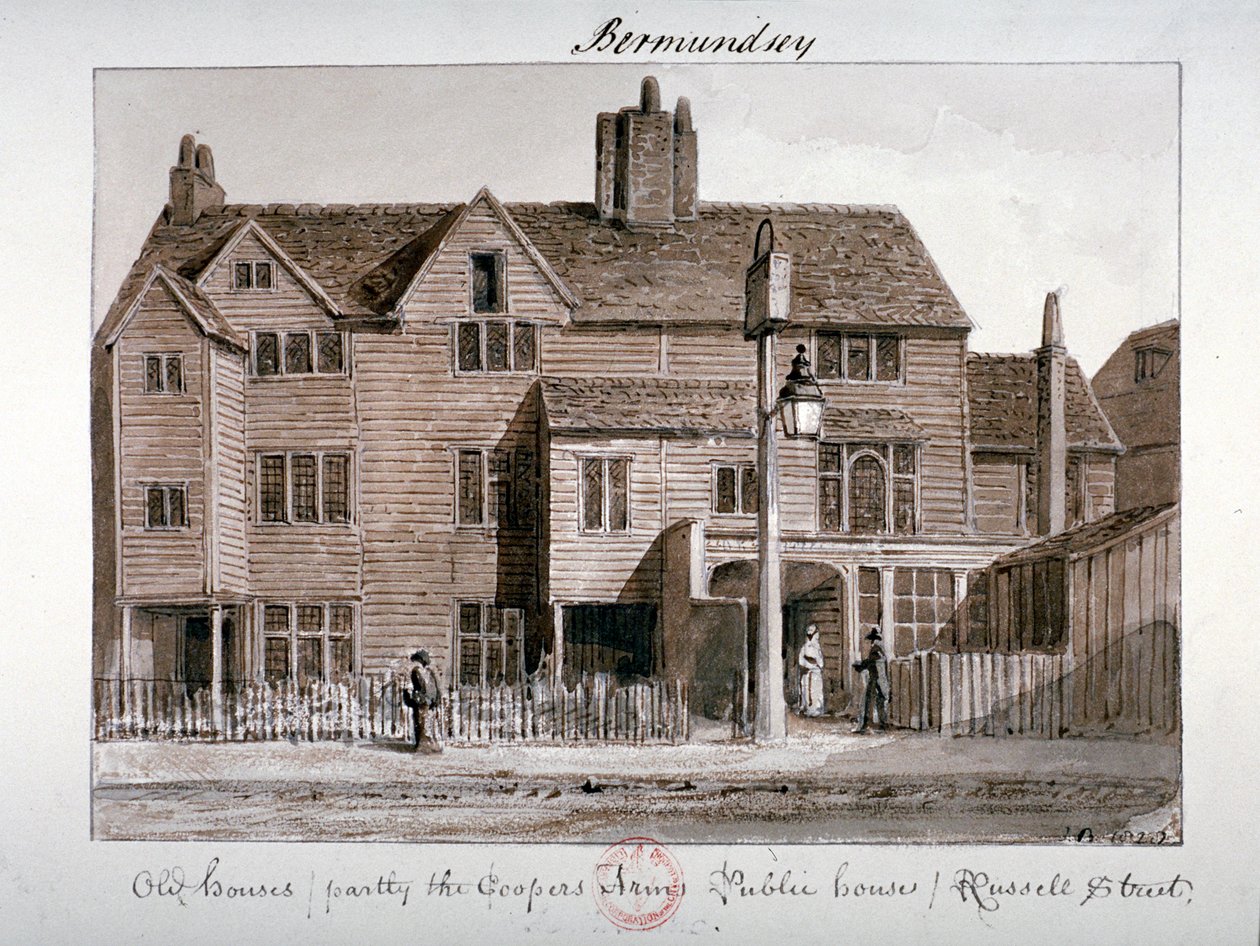 Bermundsey
J.B. 1827
Old houses / partly the Coopers Arms Public house / Russell Street,
CORPORATION